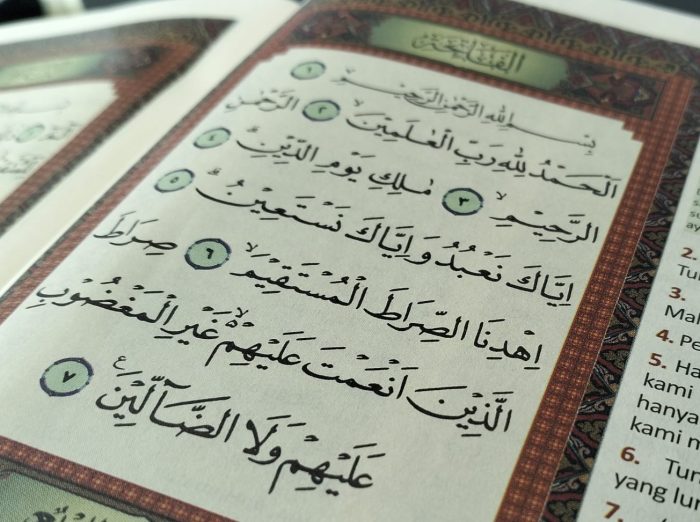 الفاتحة
بِسْمِ اللّٰهِ الرَّحْمٰنِ الرَّحِيْمِ ١
اَلْحَمْدُ لِلّٰهِ رَبِّ الْعٰلَمِيْنَۙ ٢ الرَّحْمٰنِ
الرَّحِيْمِۙ ٣ مٰلِكِ يَوْمِ الدِّيْنِۗ ٤
اِيَّاكَ نَعْبُدُ وَاِيَّاكَ نَسْتَعِيْنُۗ ٥
اِهْدِنَا الصِّرَاطَ الْمُسْتَقِيْمَۙ ٦ صِرَاطَ
الَّذِيْنَ اَنْعَمْتَ عَلَيْهِمْ ەۙ غَيْرِ الْمَغْضُوْبِ
عَلَيْهِمْ وَلَا الضَّاۤلِّيْنَ ࣖ ٧
2.
3.
4.
5.
kami
hanya
kami
6.
yang
7.